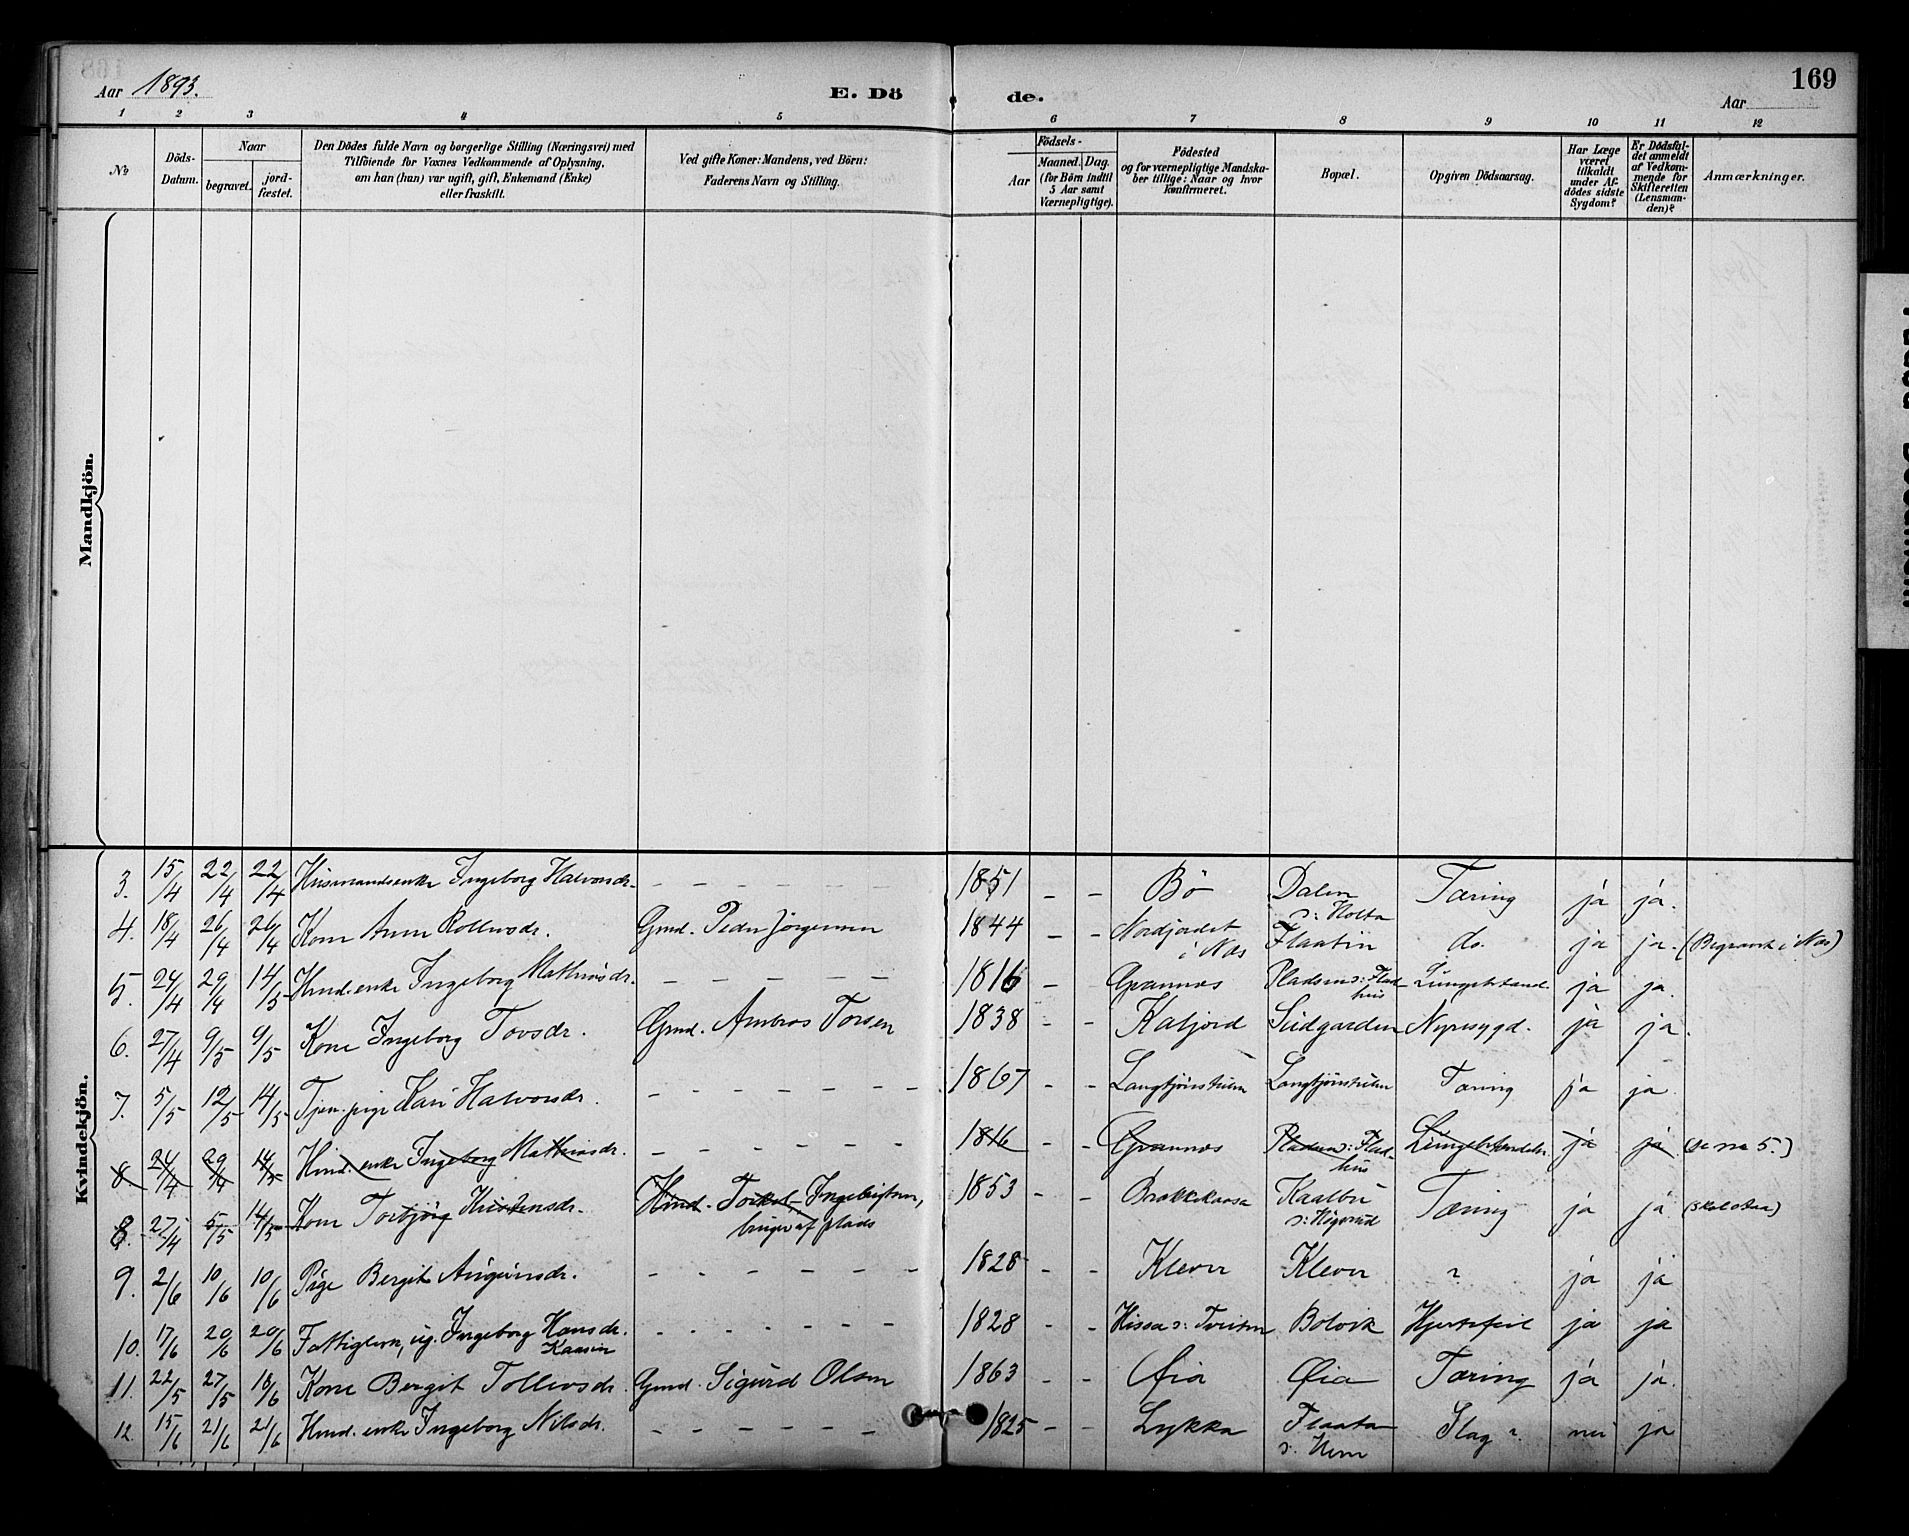 169
Aar 1893.
E. Dö
de.
Aar
1 2 3 4 5 6 7 8 9 10 11 12
No
Döds-Datum.
Naar
begravet.
jord-fæstet.
Den Dödes fulde Navn og borgerlige Stilling (Næringsvei) med
Tilföiende for Voxnes Vedkommende af Oplysning,
om han (hun) var ugift, gift, Enkemand (Enke)
eller fraskilt.
Ved gifte Koner: Mandens, ved Börn:
Faderens Navn og Stilling.
Födsels-
Aar
Maaned. Dag.
(for Börn indtil
5 Aar samt
Værnepligtige).
Födested
og for værnepligtige Mandska-
ber tillige: Naar og hvor
konfirmeret.
Bopæl.
Opgiven Dödsaarsag.
Har Læge
været
tilkaldt
under Af-
dödes sidste
Sygdom?
Er Dödsfal-
det anmeldt
af Vedkom-
mende for
Skifteretten
(Lensman-
den)?
Anmærkninger.
Mandkjön.
Kvindekjön.
3. 15/4 22/4 22/4 Husmandsenke Ingeborg Halvorsdr. - - - - - - 1851 - - Bö Dalen Tæring ja ja.
ɔ: Holta
4. 18/4 26/4 26/4 Kone Anne Rollevsdr. Gmd. Peder Jörgensen 1844 - - Nordjordet Flaatin do. ja ja. (Begravet i Næs)
i Næs
5. 24/4 29/4 14/5 Hmd. enke Ingeborg Mathisdr. - - - - - 1816 - Grannæs Pladsen ɔ: Flad- Lungebetænd. ja ja.
hus
6. 27/4 9/5 9/5 Kone Ingeborg Tovsdr. Gmd. Ambros Torsen 1838 - - Kaljord Sudgarden Nyresygd. ja ja.
7. 5/5 12/5 14/5 Tjen. pige Kari Halvorsdr. - - - - - - 1867 - - Langtjönshulen Langtjönshulen Tæring ja ja.
8. 24/4 29/4 14/5 Hmd. enke Ingeborg Mathisdr. - - - - - - 1816 - - Grannæs Pladsen ɔ: Flad- ja ja (se no 5.)
hus
8. 27/4 5/5 14/5 Kone Torbjörg Kristensdr. Hmd. Torkel Ingebrigtsen, 1853 - - Kaalbu Tæring ja ja
bruger af plads
ɔ: Högerud
9. 2/6 10/6 10/6 Pige Bergit Augunsdr. - - - - - - 1828 - - Klever Klever ? ja ja
10. 17/6 20/6 20/6 Fattiglem, ug. Ingeborg Hansdr. - - - - - - 1828 - - Hissa ɔ: Tveiten Bolvik Hjertefeil ja ja
Kaasin
11. 22/5 27/5 18/6 Kone Bergit Tollevsdr. Gmd. Sigurd Olsen 1863 - - Øia Øia Tæring ja ja.
12. 15/6 21/6 21/6 Hmd. enke Ingeborg Nilsdr. - - - - - - 1825 - - Lykka Flaata Slag ? nei ja
ɔ: Hem